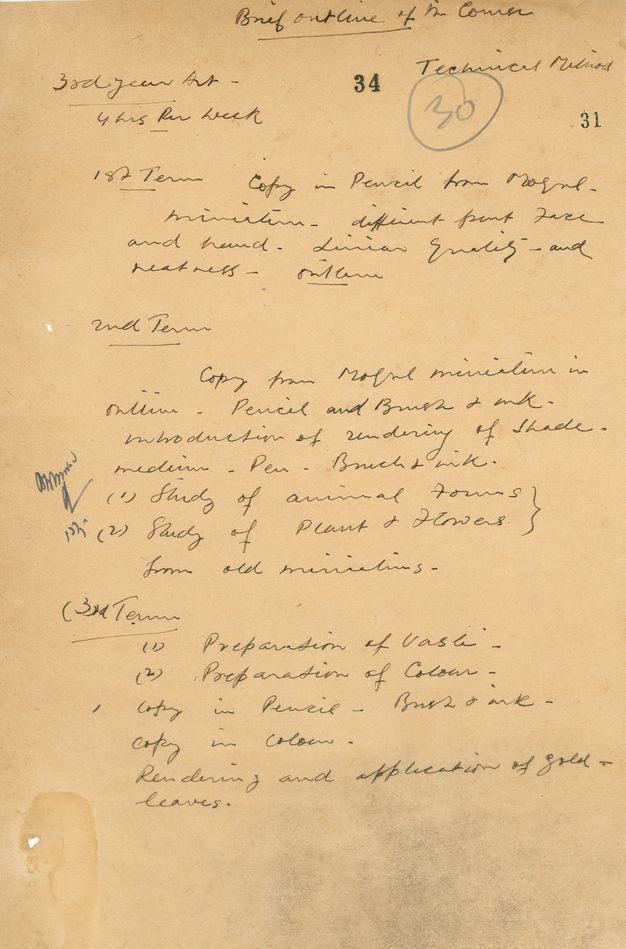 Brief outline of the Course
Technical Methods
3rd year Art -
34
30
4 hrs Per Week
31
1st Term Copy in Pencil from Mogul-
miniature - different front Face
and hand - Linear Quality - and
neatness - outline
2nd Term
Copy from Mogul miniature in
outline - Pencil and Brush & ink -
introduction of rendering of Shade -
medium - Pen - Brush & ink -
(1) Study of animal Forms }
(2) Study of Plant & Flowers }
from old miniatures -
(3rd Term
(1) Preparation of Vasli -
(2) Preparation of Colour -
Copy in Pencil - Brush & ink -
Copy in Colour -
Rendering and application of gold -
leaves.